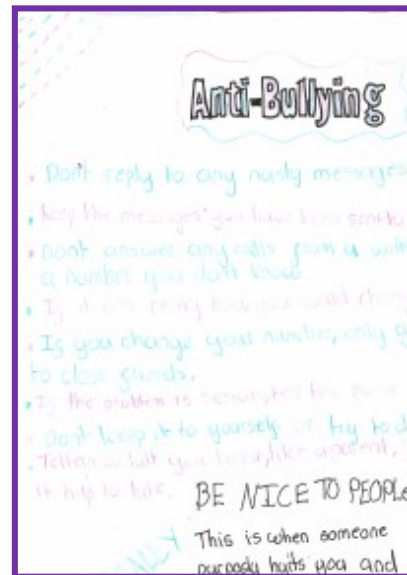 Anti-Bullying
• Don't reply to any nasty messages
• keep the messages you have been sent to
• Dont answer any calls from a
a number you don't know
• If it gets really bad, you could
• If you change your number, only
to close friends.
• If the problem is
• Dont keep it to yourself or try to
• Tell an adult you trust, like a parent,
it help to talk.
BE NICE TO PEOPLE
This is when someone
haits you and